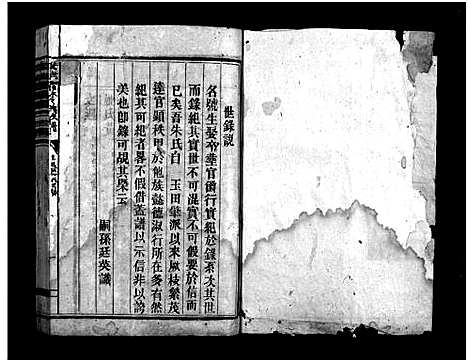 世錄説
名號生娶卒葬官爵行實紀於錄系次其世
而錄紀其實世不可混實不可假要於信而
已矣吾朱氏自 玉田肇派以來厥枝繁茂
達官顯秩甲於他族懿德淑行所在多有然
紀其可紀者畧不假借蓋譜以示信非以誇
美也即錄可覘其㮣云
嗣孫廷英識